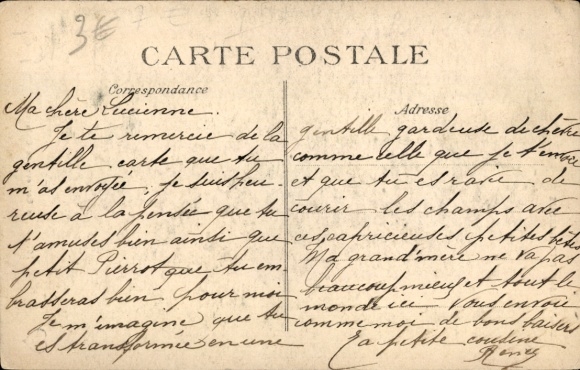 3€
CARTE POSTALE
Correspondance
Adresse
Ma chère Lucienne.
Je te remercie de la
gentille carte que tu
m'as envoyée, je suis heu-
reuse à la pensée que tu
t'amuses bien ainsi que
petit Pierrot que tu em-
brasseras bien pour moi
Je m'imagine que tu
es transformée en une
gentille gardeuse de chèvre
comme celle que je t'envoie
et que tu es ravie de
courir les champs avec
ces capricieuses petites bêtes
Ma grand'mère ne va pas
beaucoup mieux et tout le
monde ici vous envoie
comme moi de bons baisers
Ta petite cousine